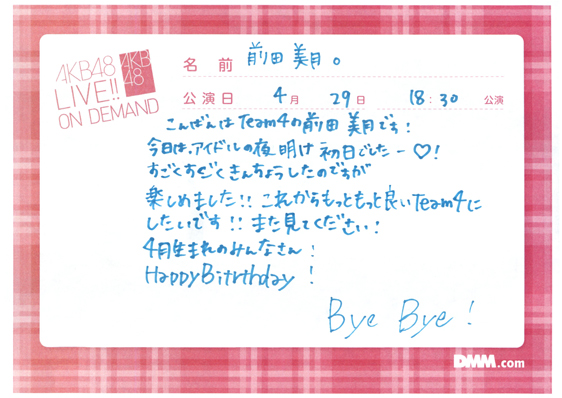 AKB48
LIVE!!
ON DEMAND
AKB
48
名 前 前田 美月。
公演日 4月 29日 18:30 公演
こんばんは Team4の前田 美月です!
今日は、アイドルの夜明け 初日でしたー♡!
すごくすごくきんちょうしたのですが
楽しめました!! これからもっともっと良いTeam4に
したいです!! また見てください!
4月生まれのみんなさん!
HappyBitrthday !
Bye Bye !
DMM.com